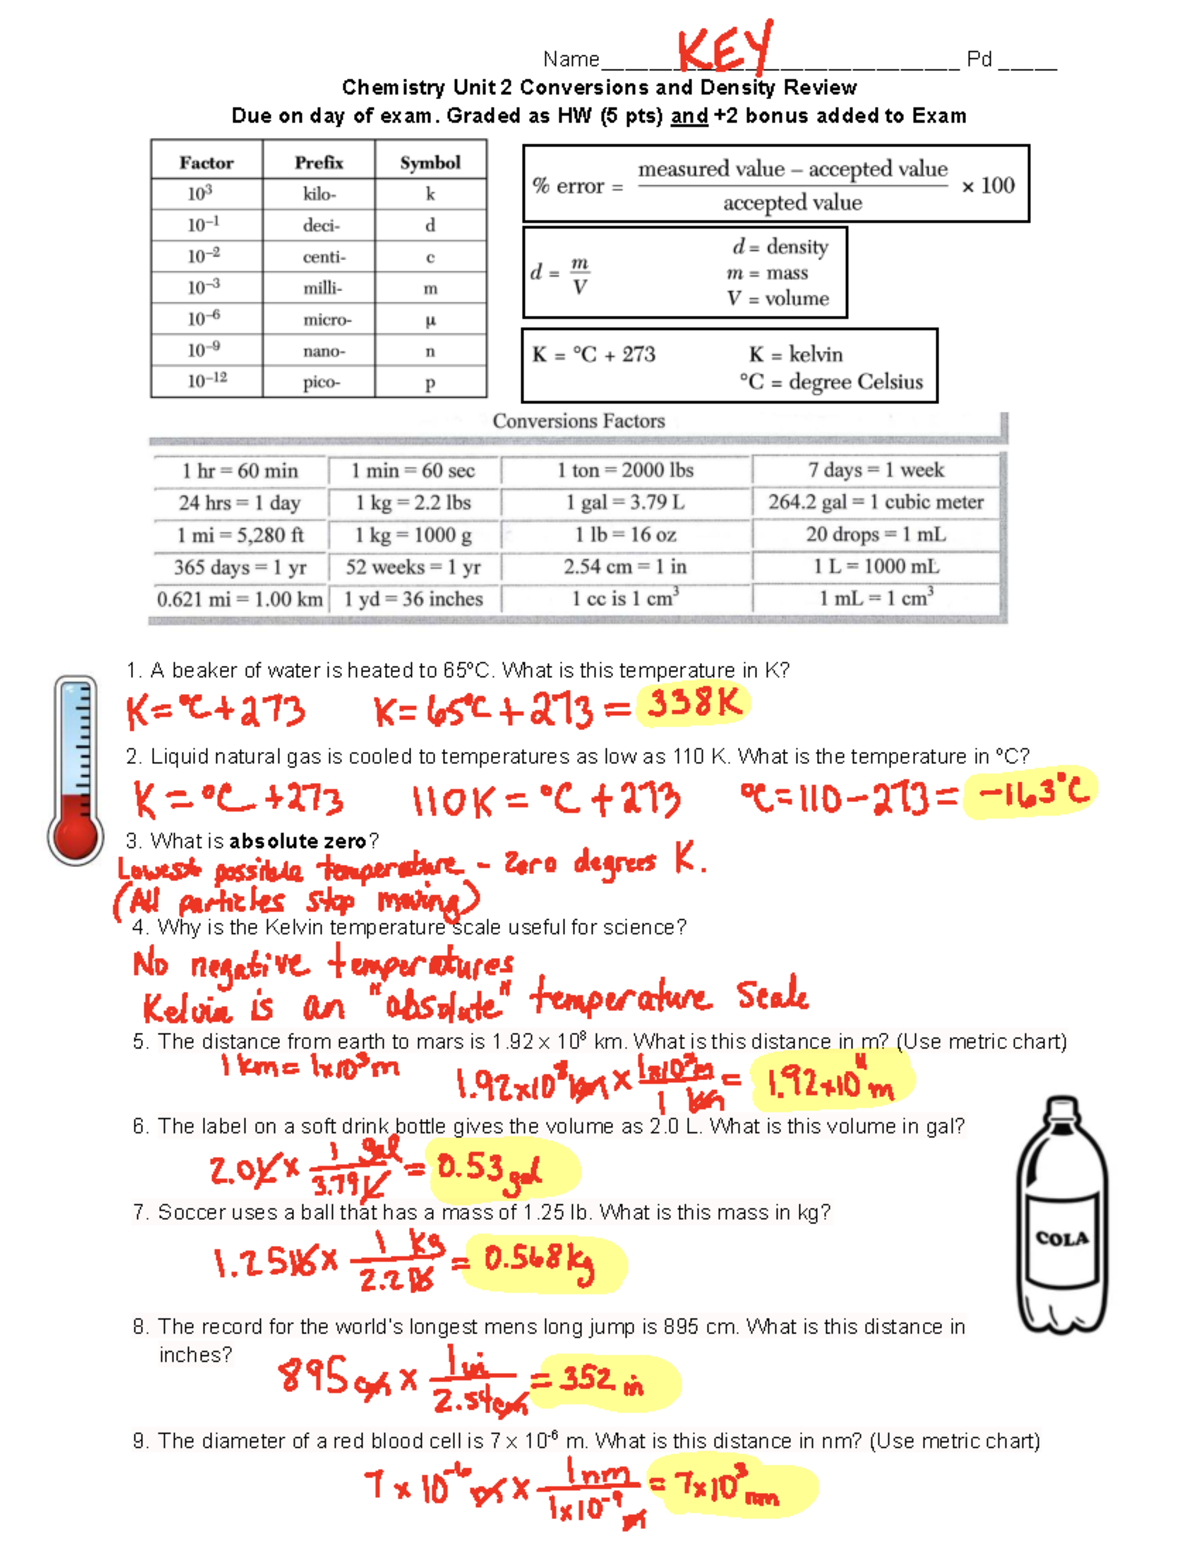 Name KEY Pd
Chemistry Unit 2 Conversions and Density Review
Due on day of exam. Graded as HW (5 pts) and +2 bonus added to Exam
Factor Prefix Symbol
10³ kilo- k
10⁻¹ deci- d
10⁻² centi- c
10⁻³ milli- m
10⁻⁶ micro- μ
10⁻⁹ nano- n
10⁻¹² pico- p
% error = measured value – accepted value / accepted value × 100
d = m / V
d = density
m = mass
V = volume
K = °C + 273
K = kelvin
°C = degree Celsius
Conversions Factors
1 hr = 60 min 1 min = 60 sec 1 ton = 2000 lbs 7 days = 1 week
24 hrs = 1 day 1 kg = 2.2 lbs 1 gal = 3.79 L 264.2 gal = 1 cubic meter
1 mi = 5,280 ft 1 kg = 1000 g 1 lb = 16 oz 20 drops = 1 mL
365 days = 1 yr 52 weeks = 1 yr 2.54 cm = 1 in 1 L = 1000 mL
0.621 mi = 1.00 km 1 yd = 36 inches 1 cc is 1 cm³ 1 mL = 1 cm³
1. A beaker of water is heated to 65ºC. What is this temperature in K?
K = °C + 273 K = 65°C + 273 = 338 K
2. Liquid natural gas is cooled to temperatures as low as 110 K. What is the temperature in ºC?
K = °C + 273 110K = °C + 273 °C = 110 - 273 = -163°C
3. What is absolute zero?
Lowest possible temperature - zero degrees K.
(All particles stop moving)
4. Why is the Kelvin temperature scale useful for science?
No negative temperatures
Kelvin is an "absolute" temperature scale
5. The distance from earth to mars is 1.92 x 10⁸ km. What is this distance in m? (Use metric chart)
1 km = 1x10³ m 1.92x10⁸ km x 1x10³ m / 1 km = 1.92x10¹¹ m
6. The label on a soft drink bottle gives the volume as 2.0 L. What is this volume in gal?
2.0 L x 1 gal / 3.79 L = 0.53 gal
7. Soccer uses a ball that has a mass of 1.25 lb. What is this mass in kg?
1.25 lb x 1 kg / 2.2 lb = 0.568 kg
COLA
8. The record for the world's longest mens long jump is 895 cm. What is this distance in
inches?
895 cm x 1 in / 2.54 cm = 352 in
9. The diameter of a red blood cell is 7 x 10⁻⁶ m. What is this distance in nm? (Use metric chart)
7 x 10⁻⁶ m x 1 nm / 1x10⁻⁹ m = 7x10³ nm